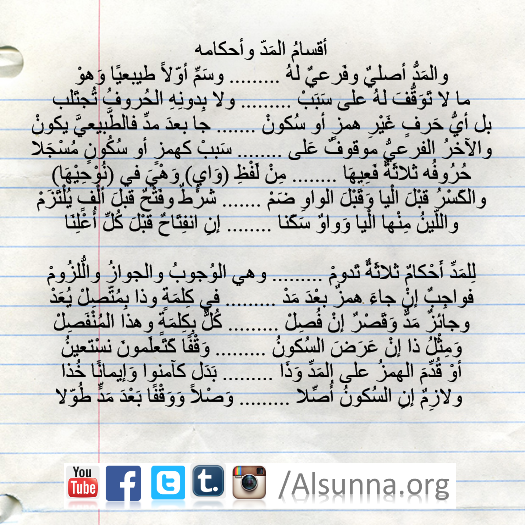 أقسامُ المَدّ وأحكامه
والمَدُّ أصليٌ وفَرعيٌ لهُ ......... وسَمِّ أوّلاً طبيعيًا وَهوْ
ما لا تَوَقُّفَ لهُ على سَبَبْ ......... ولا بِدونِهِ الحُروفُ تُجتَلب
بل أيُّ حَرفٍ غَيْرِ همزٍ أو سُكونْ ....... جا بعدَ مدٍّ فالطَّبيعيَّ يكونْ
والآخرُ الفَرعيُّ موقوفٌ عَلى ........ سَببْ كهمزٍ أو سُكُونٍ مُسْجَلا
حُرُوفُه ثَلاثَةٌ فَعِيهَا ........ مِنْ لَفْظِ (وَاي) وَهْيَ في (نُوْحِيْهَا)
والكَسْرُ قَبْلَ اليا وَقَبْلَ الواوِ ضَمْ ....... شَرْطٌ وفَتْحٌ قبلَ ألْفٍ يُلْتَزَمْ
واللّينُ مِنْها اليا وَواوٌ سَكَنا ........ إنِ انفِتَاحٌ قَبْلَ كُلٍّ أُعْلِنَا
لِلمَدِّ أحْكَامٌ ثلاثَةٌ تَدومْ ......... وهي الوُجوبُ والجوازُ واللُّزومْ
فواجِبٌ إنْ جاءَ همزٌ بعْدَ مَدْ ......... في كِلمَةٍ وذا بِمُتّصِلْ يُعَدْ
وجائزٌ مَدٌّ وَقَصْرٌ إنْ فُصِلْ ......... كُلٌّ بِكِلمَةٍ وهذا المُنْفَصِلْ
وَمِثْلُ ذا إنْ عَرَضَ السُكونُ ......... وَقْفًا كَتَعلَمونَ نَستْعينُ
أوْ قُدِّمَ الهمزُ على المَدِّ وَذَا ......... بَدَل كآمنوا وَإيمانًا خُذا
ولازِمٌ إنِ السُكونُ أُصِّلا ......... وَصْلاً وَوَقْفًا بَعْدَ مَدٍّ طُوِّلا
You Tube f t. /Alsunna.org